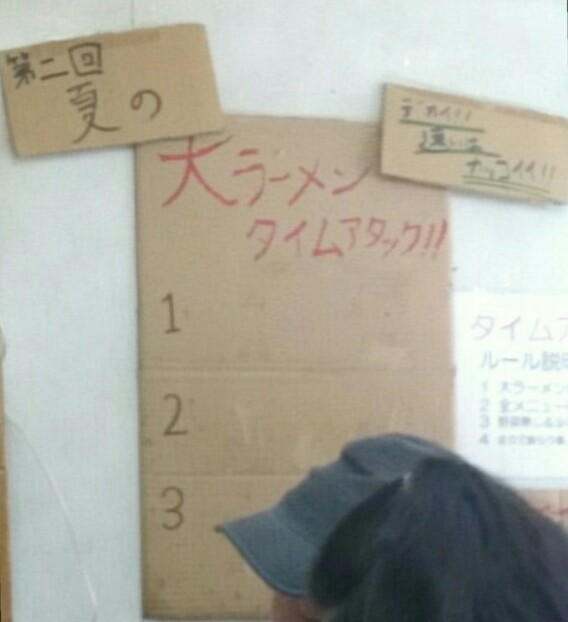 第二回
夏の
デカイ!!
速いは
カッコイイ!!
大ラーメン
タイムアタック!!
1
2
3
タイムア
ルール説明
1 大ラーメン
2 全メニュー
3
4